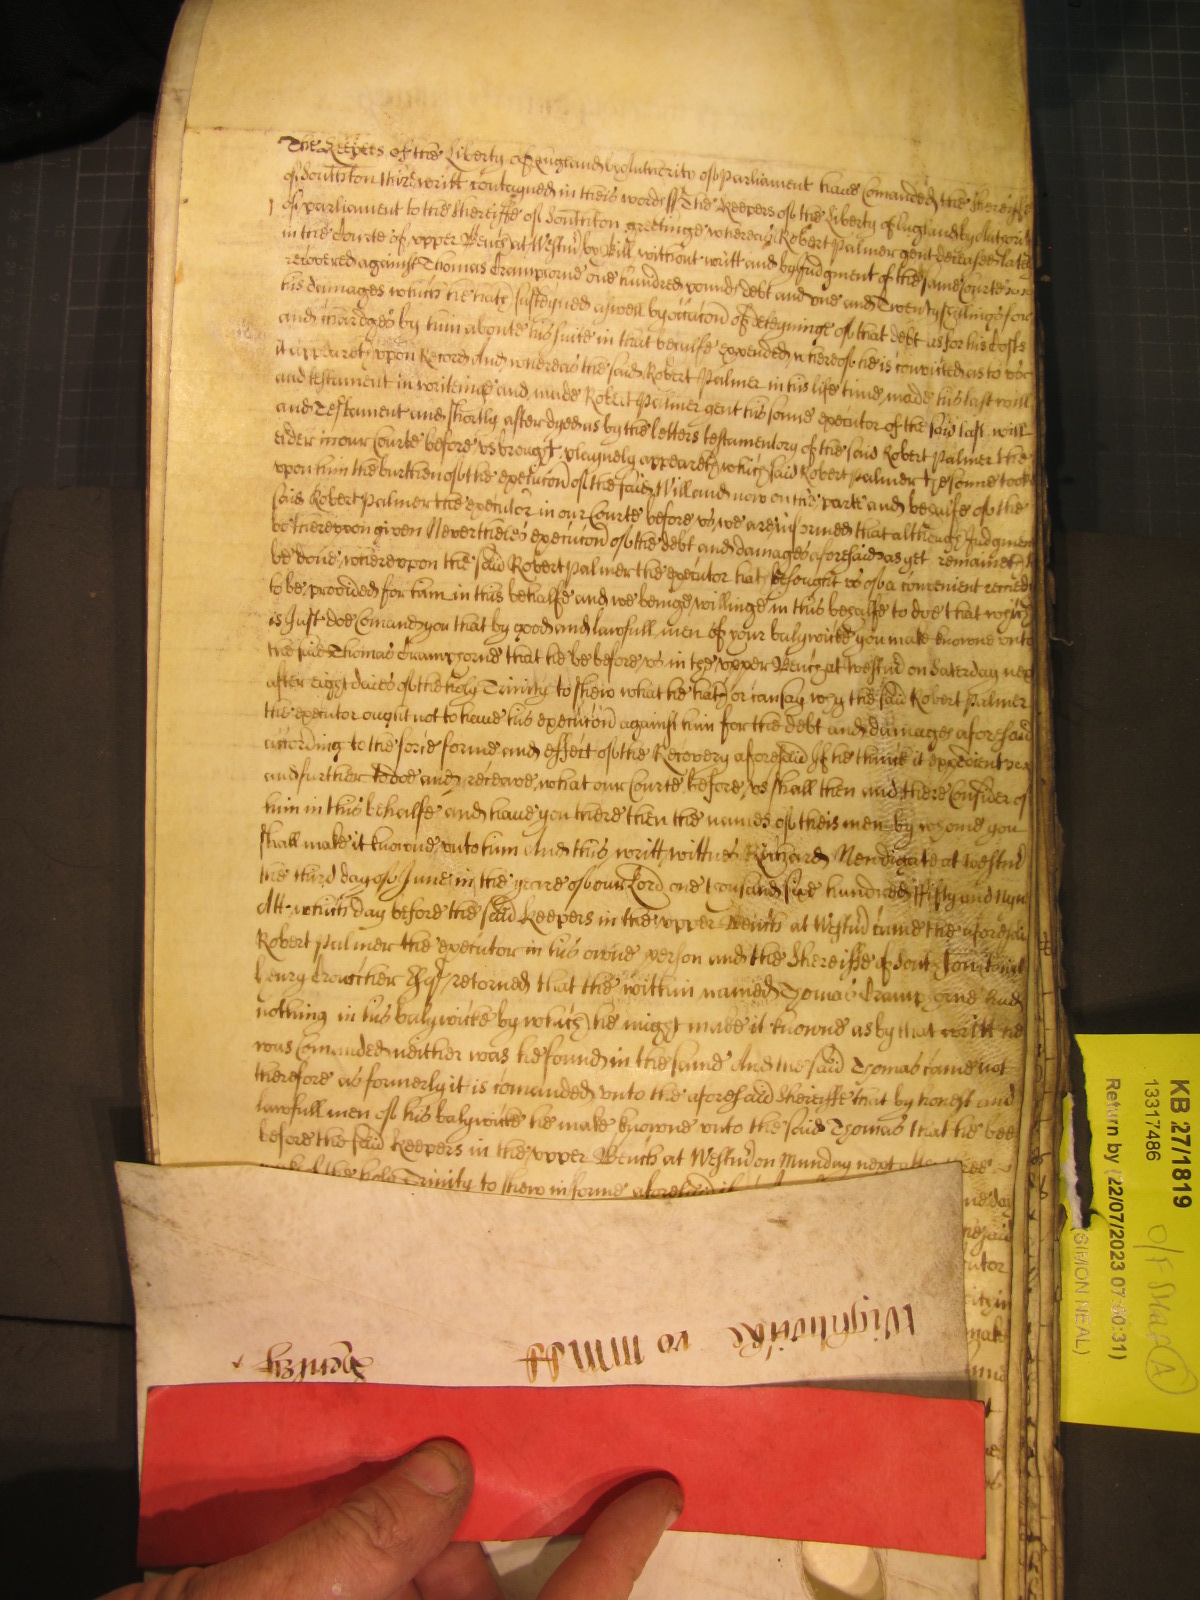 The Keepers of the Liberty of England by Authority of Parliament have Comanded the Shereiffe
of Southton their writt conteyned in theis words ss The Keepers of the Liberty of England by Authority
of parliament to the Shereiffe of Southton greetinge whereas Robert Palmer gent deceased lately
in the Courte of upper Bench at Westm by bill without writt and by Judgment of the same Courte
recovered against Thomas Cramphorne one hundred pounds debt and one and Twenty shillings for
his damages which he hath susteyned aswell by occacon of deteyninge of that debt as for his Costs
and chardges by him aboute his suite in that behalfe expended whereof he is convicted as to us
it appeareth upon Record And whereas the said Robert Palmer in his life time made his last will
and testament in writeinge and made Robert Palmer gent his sonne executor of the said last will
and Testament and shortly after dyed as by the letters testamentory of the said Robert Palmer the
elder in our Courte before us brought playnely appeareth which said Robert Palmer the sonne tooke
upon him the burthen of the execucon of the said Will and now on the parte and behalfe of the
said Robert Palmer the executor in our Courte before us we are informed that although Judgment
be thereupon given Neverthelés execucon of the debt and damages aforesaid as yet remaineth to
be done whereupon the said Robert Palmer the executor hath besought us of a convenient remedy
to be provided for him in this behalfe and we beinge willinge in this behalfe to doe that which
is Just doe Comand you that by good and lawfull men of your balywicke you make knowne unto
the said Thomas Cramphorne that he be before us in the upper Bench at Westm on Saterday next
after eight daies of the holy Trinity to shew what he hath or can say why the said Robert Palmer
the executor ought not to have his execucon against him for the debt and damages aforesaid
according to the force forme and effect of the Recovery aforesaid If he thincke it expedient
and further to doe and receave what our Courte before us shall then and there Consider of
him in this behalfe and have you there then the names of theis men by whome you
shall make it knowne unto him And this writt wittnes Richard Newdigate at Westm
the third day of June in the yeare of our Lord one thousand six hundred fifty and Nyne
Att which day before the said Keepers in the upper Bench at Westm came the aforesaid
Robert Palmer the executor in his owne person and the Shereiffe of Southton
henry Crowcher Esq retorned that the within named Thomas Cramphorne had
nothing in his balywicke by which he might make it knowne as by that writt he
was Comanded neither was he found in the same And the said Thomas came not
therefore as formerly it is comanded unto the aforesaid Shereiffe that by honest and
lawfull men of his balywicke he make knowne unto the said Thomas that he bee
before the said Keepers in the upper Bench at Westm on Munday next after three
the holy Trinity to shew in forme aforesaid if
Wightwicke
KB 27/1819
13317486
Return by (22/07/2023 07:60:31)
(SIMON NEAL)
O/F Staff A